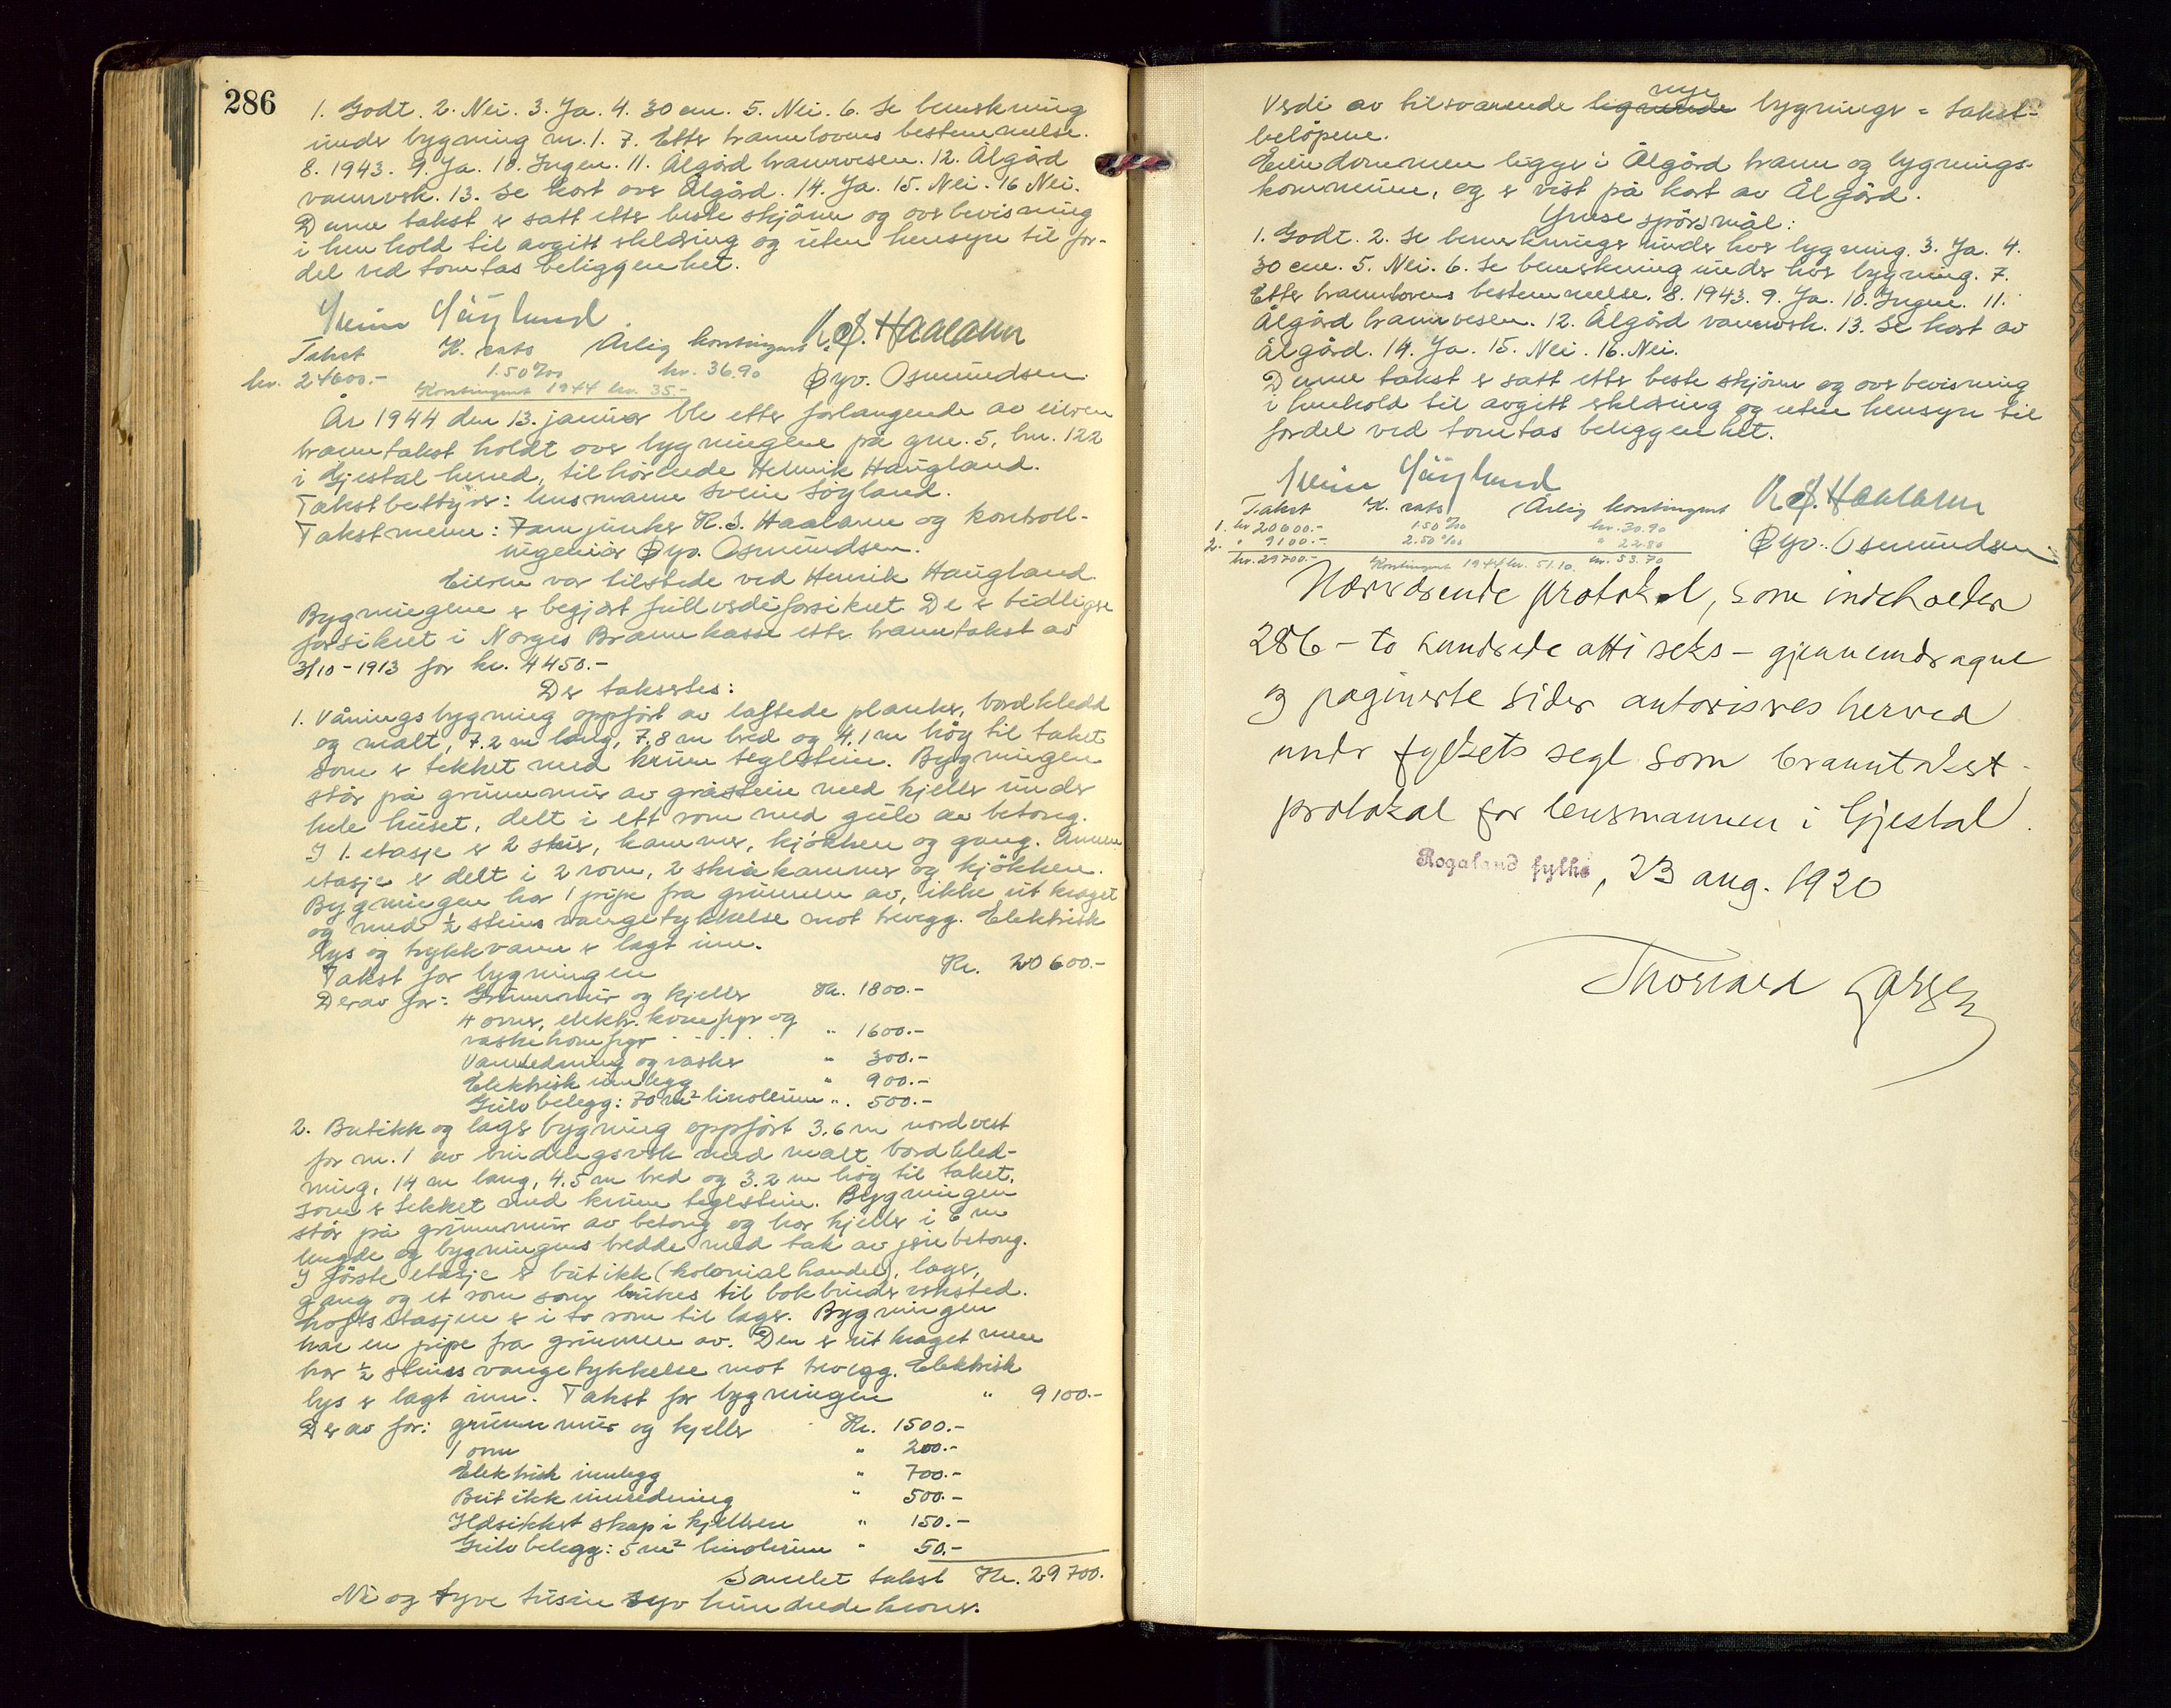 286
1. Godt. 2. Nei. 3. Ja. 4. 30 cm. 5. Nei. 6. Se bemerkning
under bygning nr. 1. 7. Etter brannlovens bestemmelse.
8. 1943. 9. Ja. 10. Ingen. 11. Ålgård brannvesen. 12. Ålgård
vannverk. 13. Se kart over Ålgård. 14. Ja. 15. Nei. 16 Nei.
Denne takst er satt etter beste skjönn og overbevisning
i henhold til avgitt erklæring og uten hensyn til for-
del ved tomtas beliggenhet.
Svein Söyland
K. S. Haaland
Takst K. sats Årlig kontingent
kr. 24600.- 1.50 ‰ kr. 36.90
Øyv. Osmundsen
Kontingent 1944 kr. 35.-
År 1944 den 13. januar ble etter forlangende av eieren
branntakst holdt over bygningene på gnr. 5, bnr. 122
i Gjestal herred, tilhörende Henrik Haugland.
Takstbestyrer: lensmann Svein Söyland.
Takstmenn: Fanejunker K. S. Haaland og kontroll-
ingeniör Øyv. Osmundsen.
Eieren var tilstede ved Henrik Haugland.
Bygningene er begjært fullverdiforsikret. De er tidligere
forsikret i Norges Brannkasse etter branntakst av
3/10-1913 for kr. 4450.-
Der takseres:
1. Våningsbygning oppfört av laftede planker, bordkledd
og malt, 7.2 m lang, 7.8 m bred og 4.1 m höy til taket
som er tekket med krum teglstein. Bygningen
står på grunnmur av gråstein med kjeller under
hele huset, delt i ett rom med gulv av betong.
I 1. etasje er 2 stuer, kammer, kjökken og gang. Annen
etasje er delt i 2 rom, 2 skråkammer og kjökken.
Bygningen har 1 pipe fra grunnen av, ikke utkraget
og med ½ steins vangetykkelse mot trevegg. Elektrisk
lys og trykkvann er lagt inn.
Takst for bygningen Kr. 20600.-
Derav for: Grunnmur og kjeller Kr. 1800.-
4 ovner, elektr. komfyr og
vaskekomfyr . . . . . " 1600.-
Vannledning og vasker " 300.-
Elektrisk innlegg " 900.-
Gulvbelegg: 70 m² linoleum " 500.-
2. Butikk og lagerbygning oppfört 3.6 m nordvest
for nr. 1 av bindingsverk med malt bordkled-
ning, 14 m lang, 4.5 m bred og 3.2 m höy til taket,
som er tekket med krum teglstein. Bygningen
står på grunnmur av betong og har kjeller i 6 m
lengde og bygningens bredde med tak av jernbetong.
I förste etasje er butikk (kolonialhandel), lager,
gang og et rom som brukes til bokbinderverksted.
Loftsetasjen er i to rom til lager. Bygningen
har en pipe fra grunnen av. Den er utkraget men
har ½ steins vangetykkelse mot trevegg. Elektrisk
lys er lagt inn. Takst for bygningen " 9100.-
Derav for: grunnmur og kjeller Kr. 1500.-
1 ovn " 200.-
Elektrisk innlegg " 700.-
Butikkinnredning " 500.-
Ildsikkert skap i kjelleren " 150.-
Gulvbelegg: 5 m² linoleum " 50.-
Samlet takst Kr. 29700.
Ni og tyve tusen syv hundrede kroner.
nye
Verdi av tilsvarende lignende bygninger = takst-
belöpene.
Eiendommen ligger i Ålgård brann og bygnings-
kommune, og er vist på kart av Ålgård.
Grense spörsmål:
1. Godt. 2. Se bemerkninger under hver bygning. 3. Ja. 4.
30 cm. 5. Nei. 6. Se bemerkning under hver bygning. 7.
Etter brannlovens bestemmelse. 8. 1943. 9. Ja. 10. Ingen. 11.
Ålgård brannvesen. 12. Ålgård vannverk. 13. Se kart av
Ålgård. 14. Ja. 15. Nei. 16. Nei.
Denne takst er satt etter beste skjönn og overbevisning
i henhold til avgitt erklæring og uten hensyn til
fordel ved tomtas beliggenhet.
Svein Söyland
K. S. Haaland
Takst K. sats Årlig kontingent
1. kr 20600.- 1.50 ‰ kr. 30.90
2. " 9100.- 2.50 ‰ " 22.80
Øyv. Osmundsen
kr. 29700.- Kontingent 1944 kr. 51.10. kr. 53.70
Nærværende protokol, som indeholder
286 - to hundrede otti seks - gjennemdragne
og paginerte sider autoriseres herved
under fylkets segl som branntakst-
protokol for lensmannen i Gjestal.
Rogaland fylke, 23 aug. 1920
Thorvald Larsen